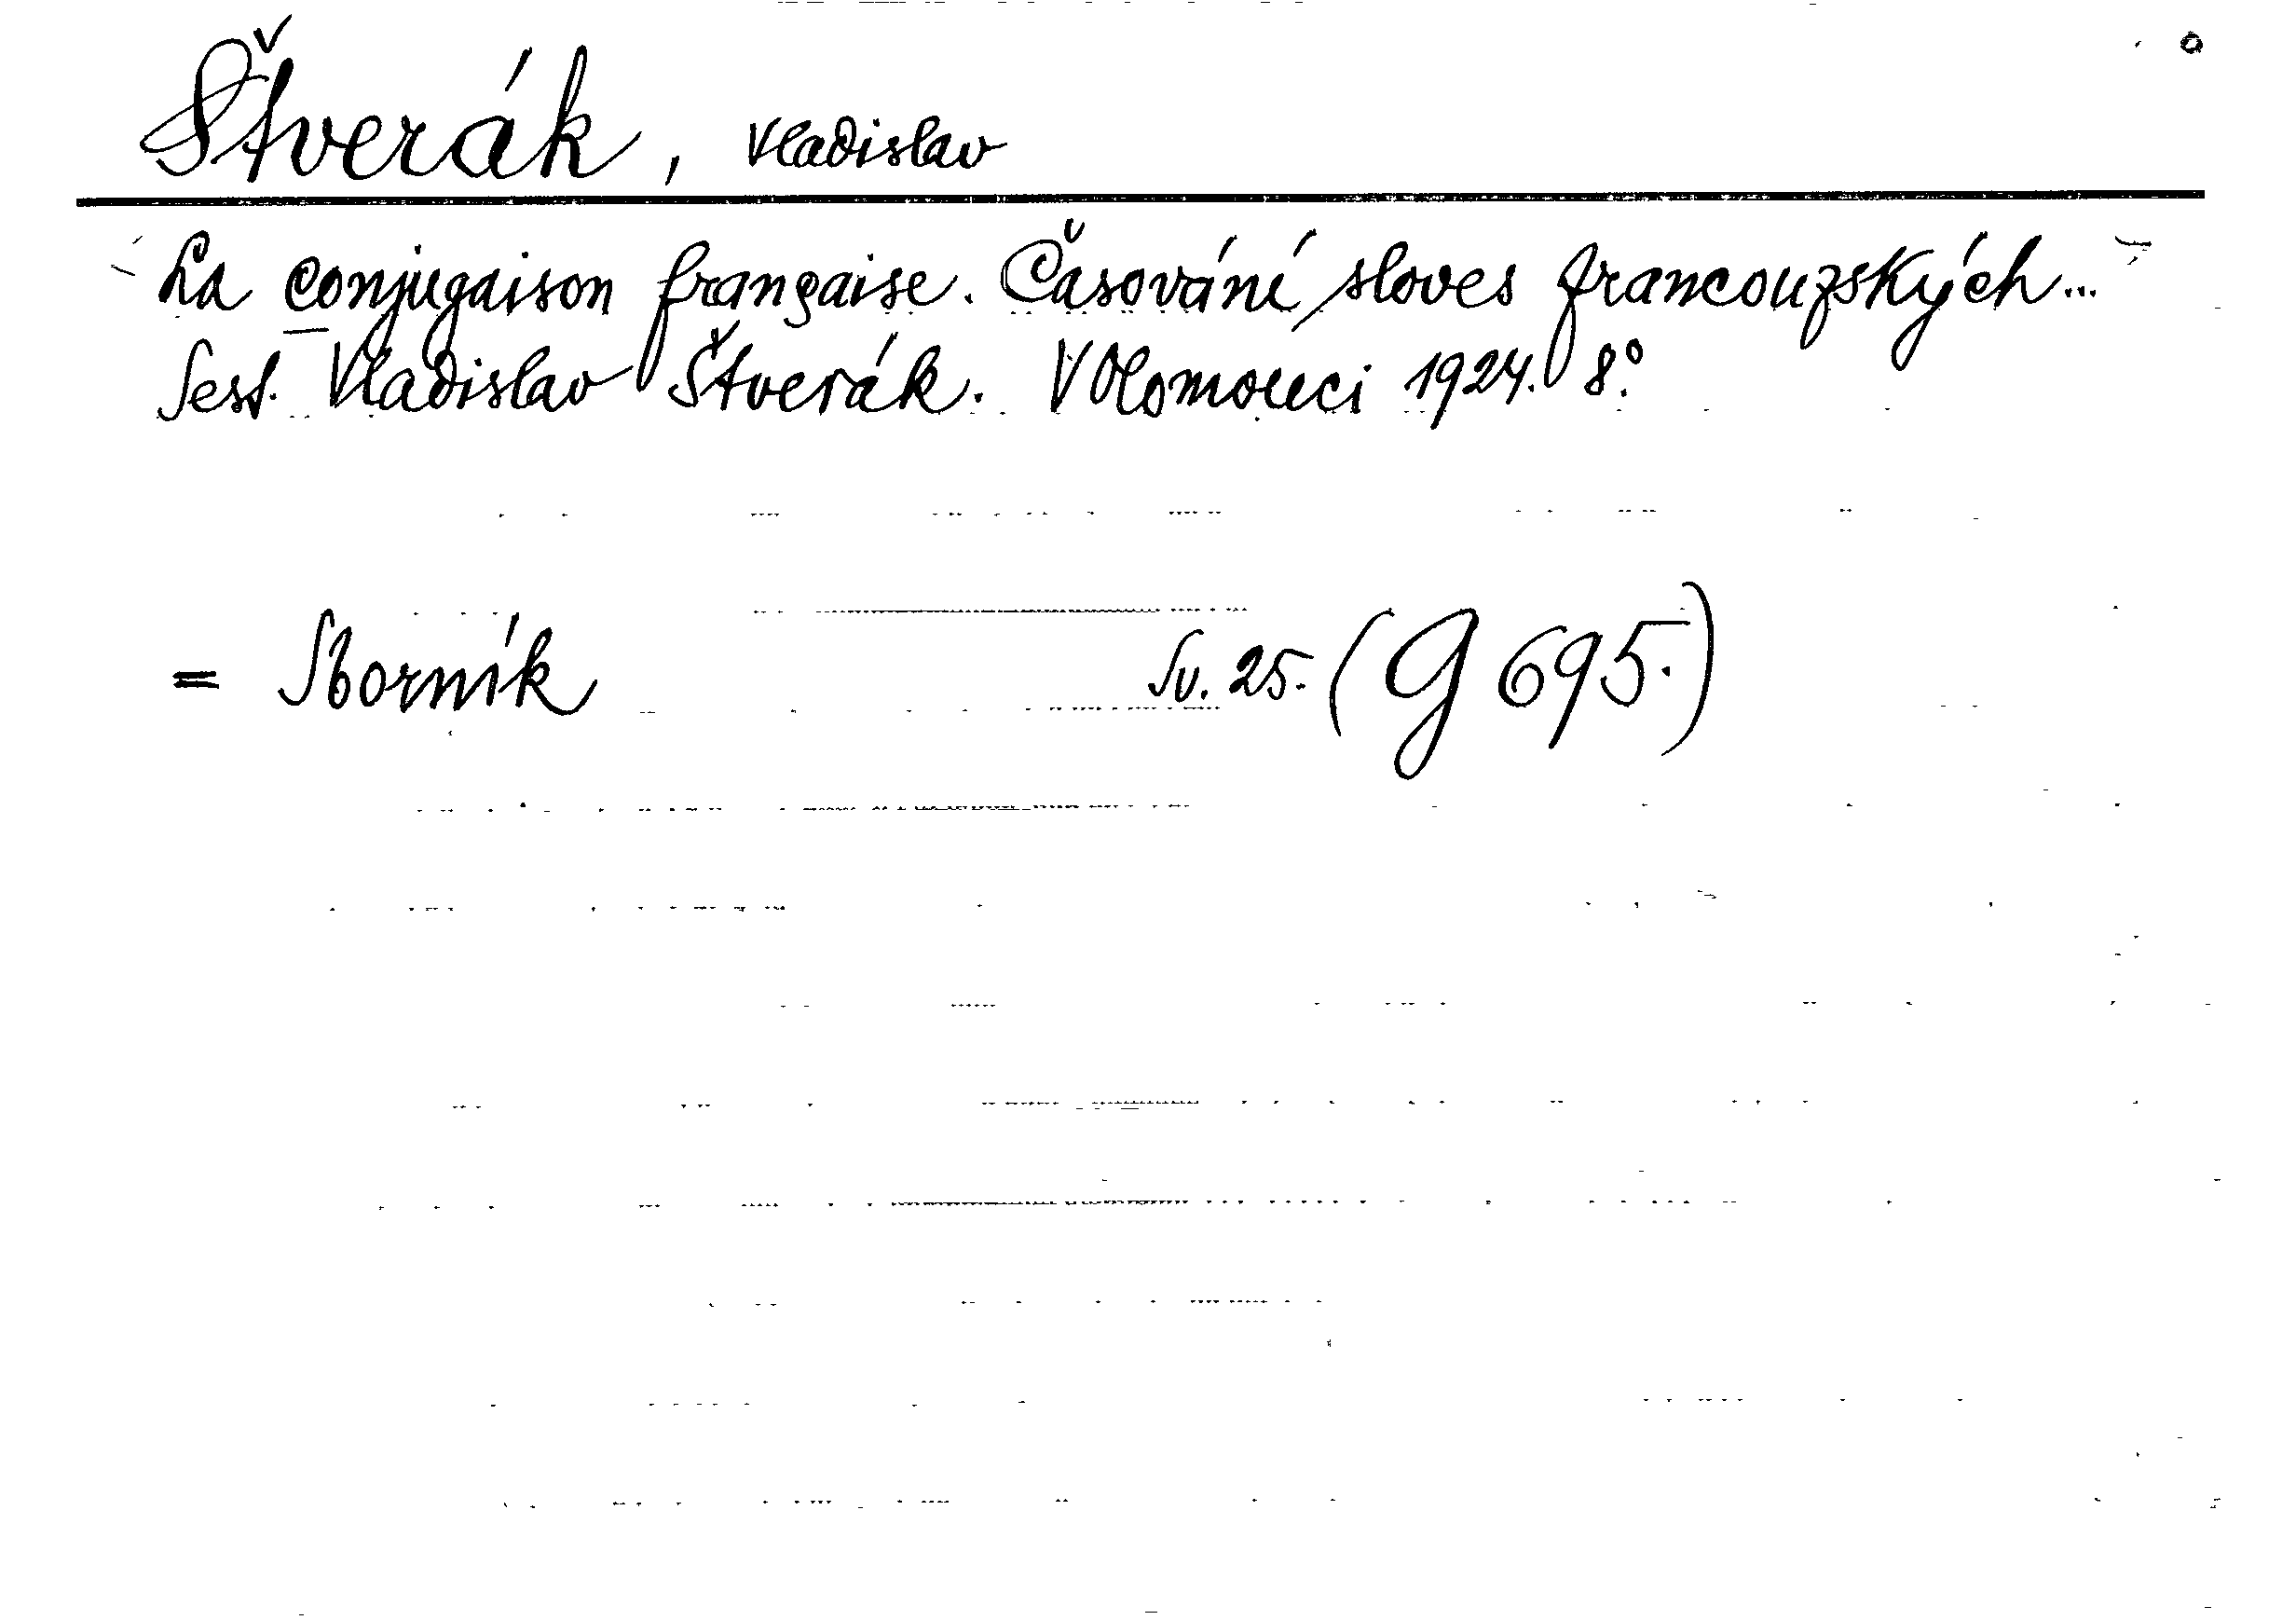 Štverák, Vladislav
La conjugaison française. Časováné sloves francouzských...
Sest. Vladislav Štverák. V Olomouci 1924. 8°.
= Sborník Sv. 25. (G 695.)